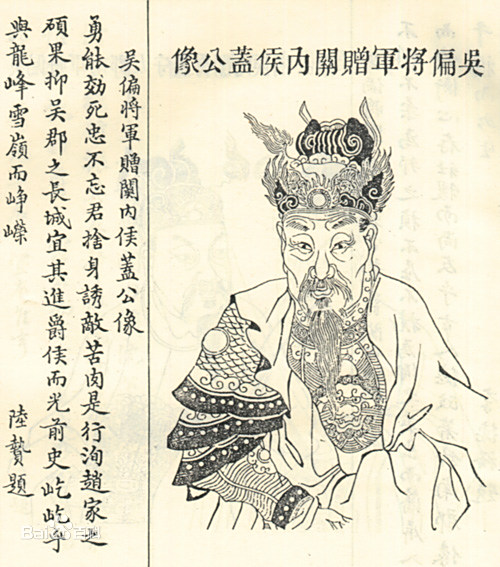 吳偏將軍贈關內侯蓋公像
吳偏將軍贈關內侯蓋公像
勇能効死忠不忘君捨身誘敵苦肉是行洵趙家之
碩果抑吳郡之長城宜其進爵侯而光前史屹屹乎
與龍峰雪嶺而崢嶸
陸贄題
Baidu百科